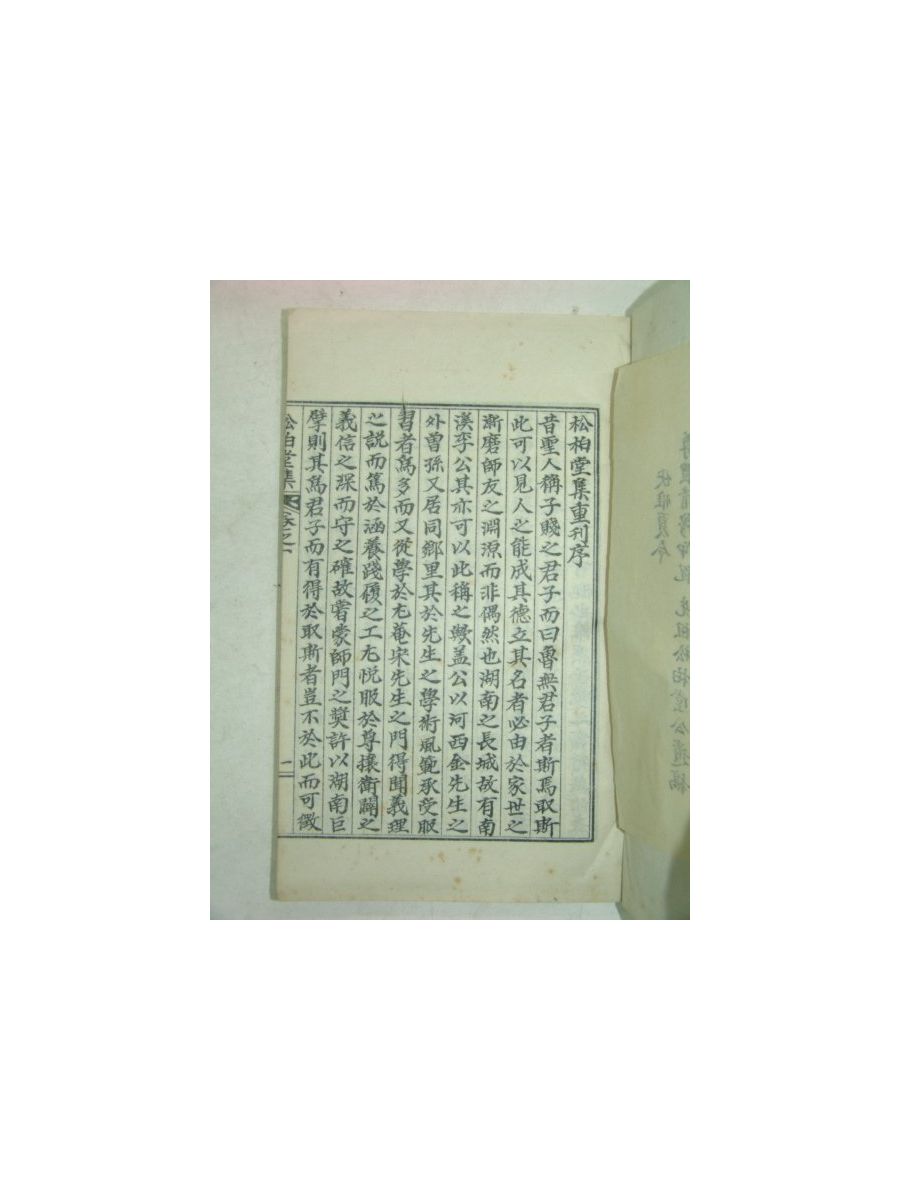 松柏堂集重刊序
昔聖人稱子賤之君子而曰魯無君子者斯焉取斯
此可以見人之能成其德立其名者必由於家世之
漸磨師友之淵源而非偶然也湖南之長城故有南
溪李公其亦可以此稱之歟盖公以河西金先生之
外曾孫又居同鄉里其於先生之學術風範承受服
習者爲多而又從學於尤菴宋先生之門得聞義理
之說而篤於涵養踐履之工尤悅服於尊攘衛闢之
義信之深而守之確故嘗蒙師門之奬許以湖南巨
擘則其爲君子而有得於取斯者豈不於此而可徵
松柏堂集
一
伏惟
先祖松柏堂公遺稿